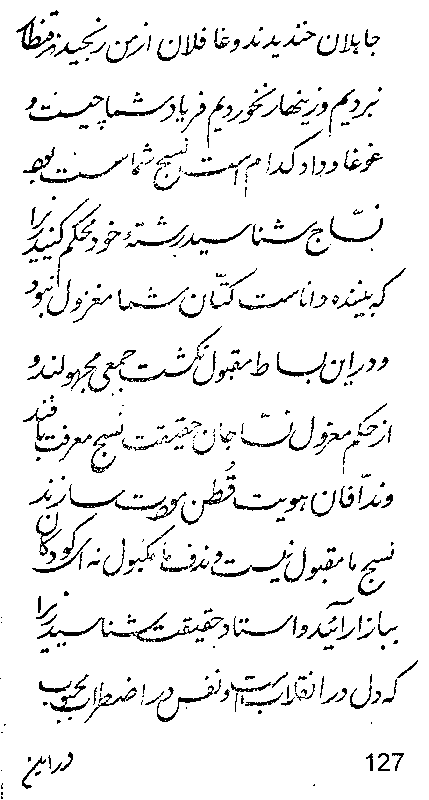 جاهلان خندیدند و غافلان از من رنجیدند قنطار
نبردیم و زینهار نخوردیم فریاد شما چیست و
غوغا و داد کدام است نسج شماست
نسّاج شناسید رشتهٔ خود محکم کنید زیرا
که بیننده داناست کتّان شما مغزول نبود
و در این بساط مقبول نگشت جمعی مجهولند و
از حکم معزول نسّاجان حقیقت نسج معرفت بافند
و ندّافان هویت قُطن سازند
نسج ما مقبول نیست و ندف ما مکبول نه ای کودکان
ببازار آئید و استاد حقیقت بشناسید زیرا
که دل در انقلاب است و نفس در اضطراب محبوب
در این
127